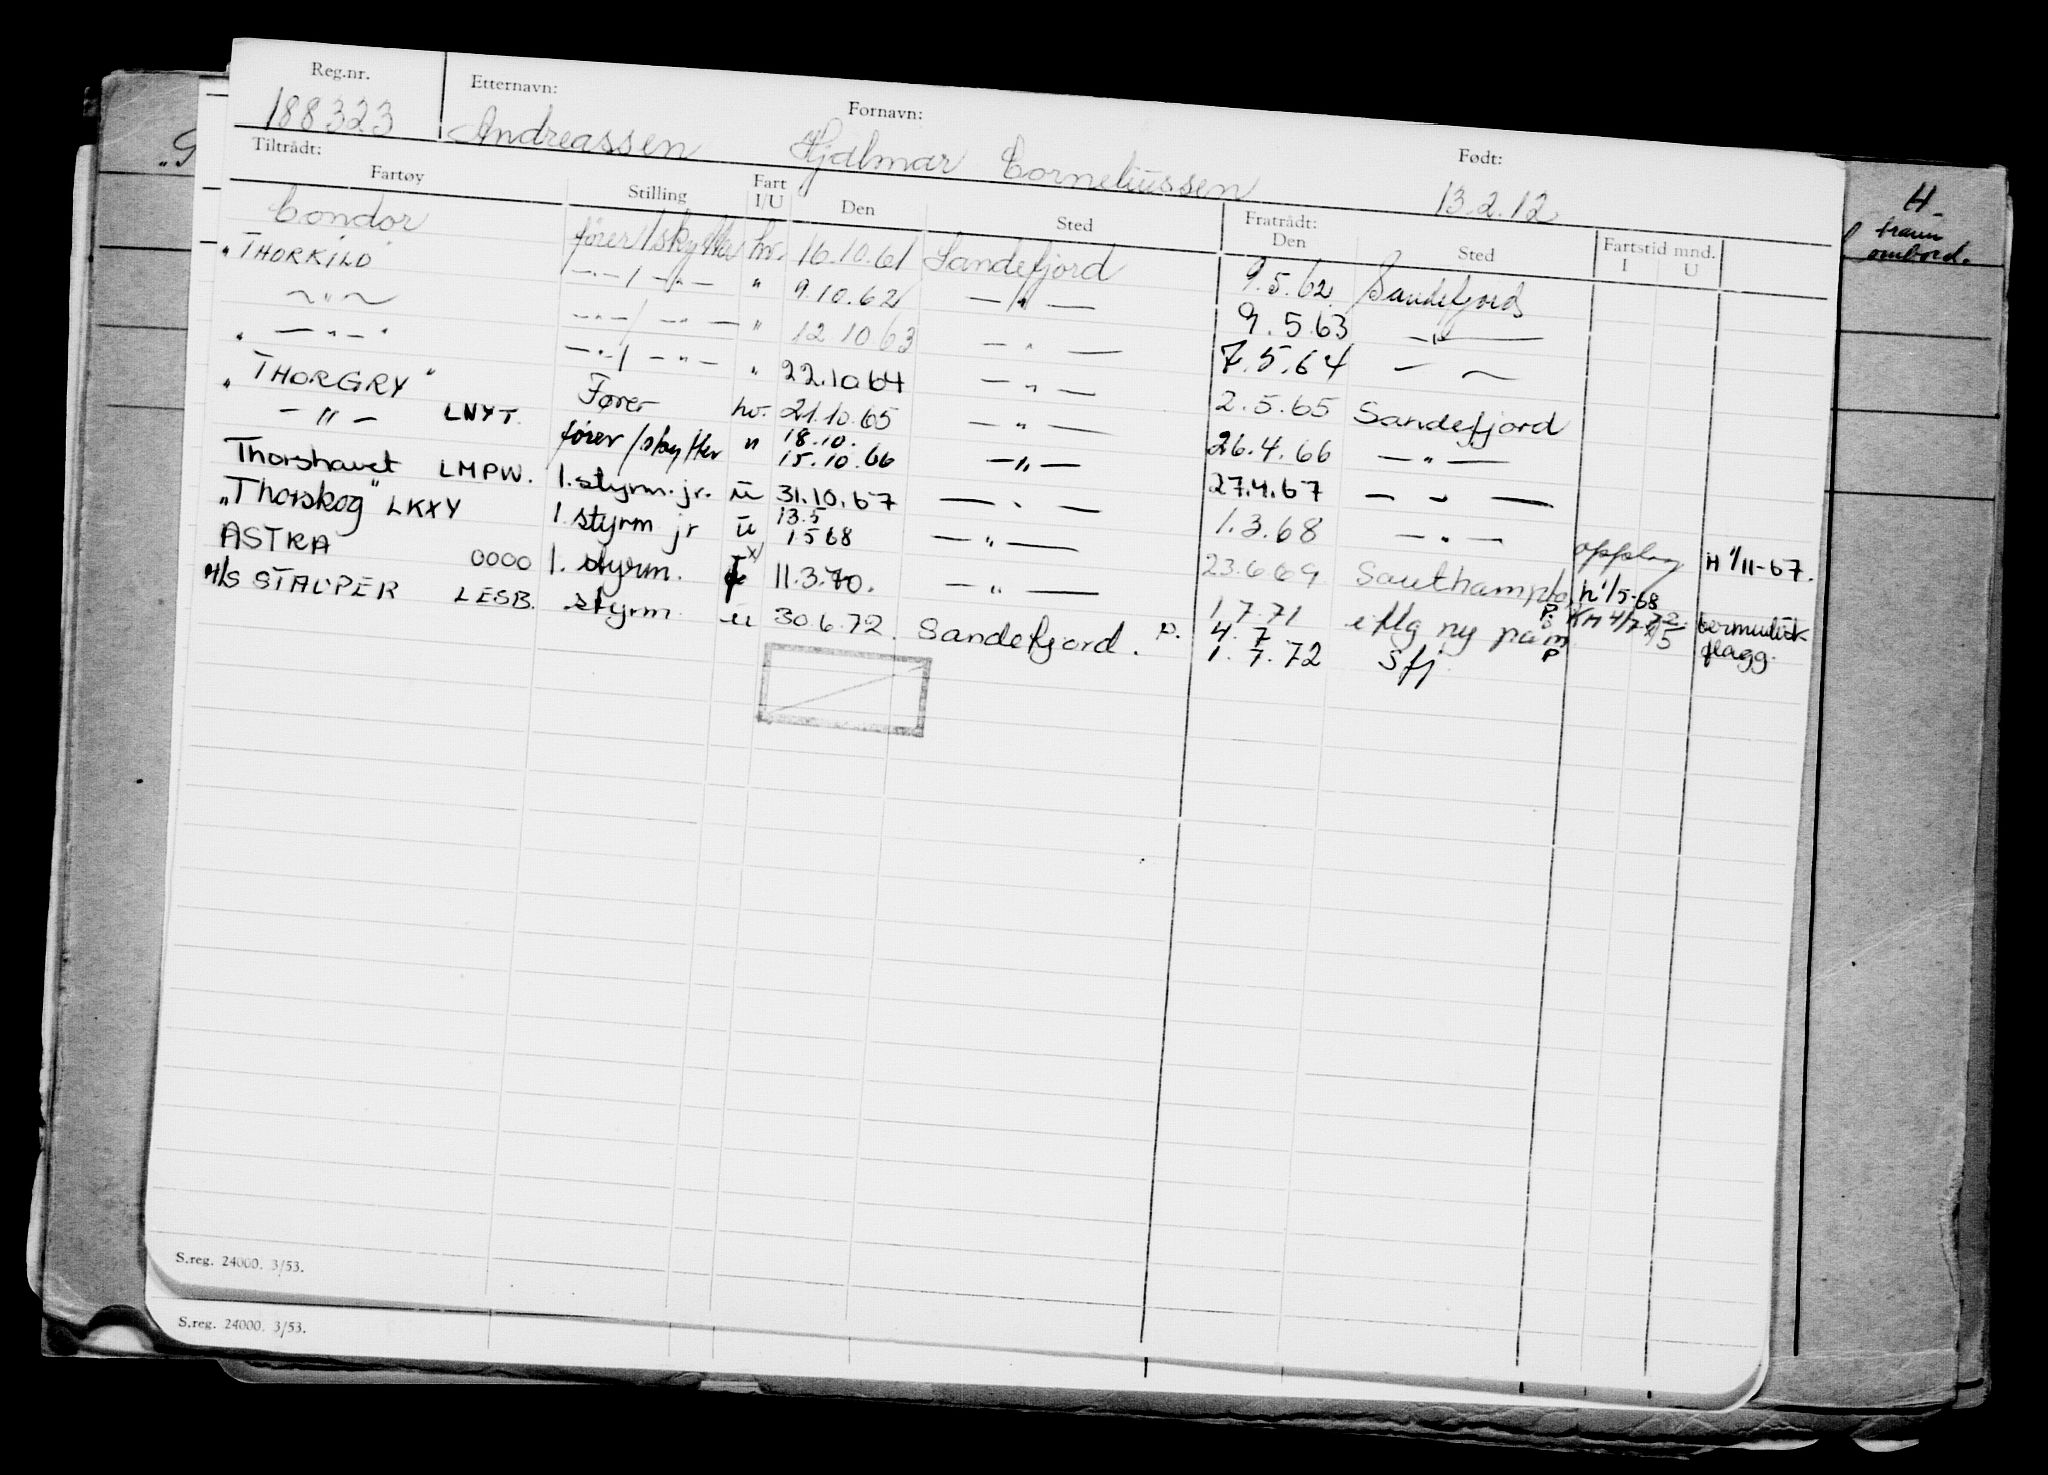 Reg.nr. Etternavn: Fornavn: Født:
188323 Andreassen Hjalmar Corneliussen 13.2.12
Tiltrådt: Fratrådt:
Fartøy Stilling Fart I/U Den Sted Den Sted Fartstid mnd. I U
Condor fører/skytter hv. 16.10.61 Sandefjord 9.5.62 Sandefjord
"THORKILD" —"—/—"— " 9.10.62 —"— 9.5.63 —"—
—"— —"—/—"— " 12.10.63 —"— 7.5.64 —"—
" —"— " —"—/—"— " 22.10.64 —"— 2.5.65 Sandefjord
"THORGRY" Fører hv. 21.10.65 —"— 26.4.66 —"—
" —"— LNYT. fører/skytter " 18.10. 15.10.66 —"— 27.4.67 —"—
Thorshavet LMPW. 1.styrm.jr. u 31.10.67 —"— 1.3.68 —"— opplag H 1/11-67.
"Thorskog" LKXY 1 styrm jr u 13.5 1 5 68 —"— 23.6 69 Southampton h 1/5-68
ASTRA 0000 1. styrm. x) 11.3.70. —"— 1 7.71 bermudisk flagg.
M/S STALPER LESB. styrm u 30.6.72 Sandefjord. P. 4. 7 1. 7.72 Sfj P
S.reg. 24000. 3/53.
S.reg. 24000. 3/53.
H-
ombord.